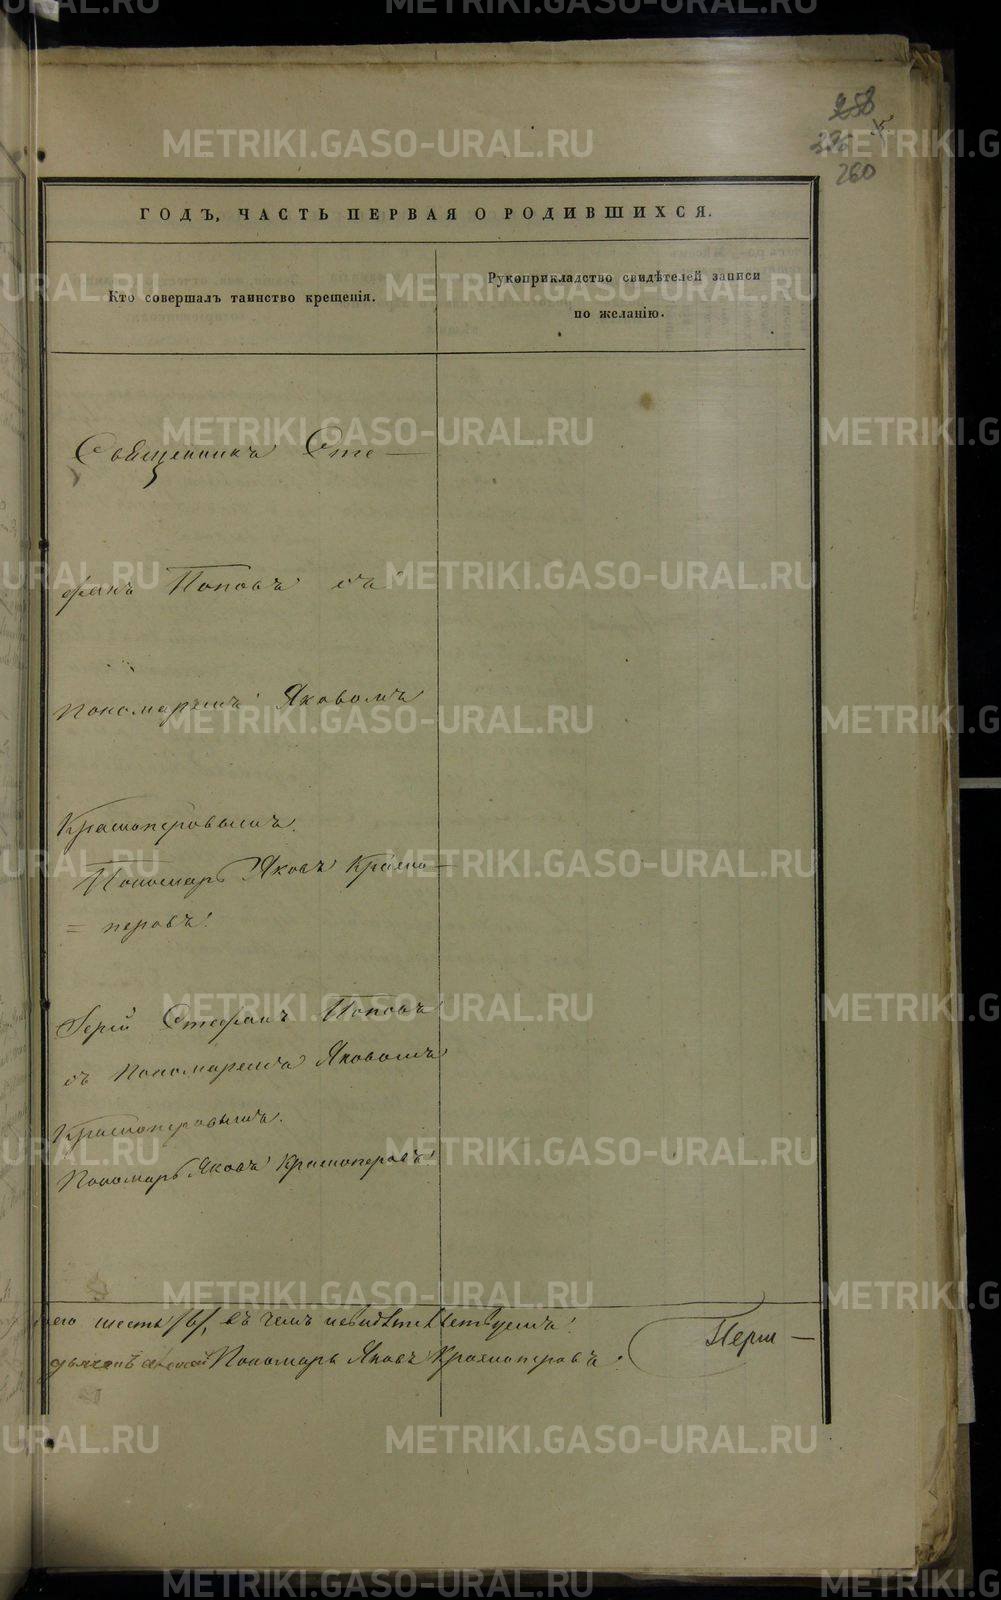 258
260
ГОДЪ, ЧАСТЬ ПЕРВАЯ О РОДИВШИХСЯ.
Кто совершалъ таинство крещенія.
Рукоприкладство свидѣтелей записи
по желанію.
Священникъ Сте-
фанъ Поповъ съ
пономаремъ Яковомъ
Красноперовымъ.
Пономарь Яковъ Красно-
= перовъ.
Іерей Стефанъ Поповъ
съ пономаремъ Яковомъ
Красноперовымъ.
Пономарь Яковъ Красноперовъ
шесть /6/, въ чемъ и свидѣтельствуемъ:
Пономарь Яковъ Красноперовъ.
Перм-
METRIKI.GASO-URAL.RU